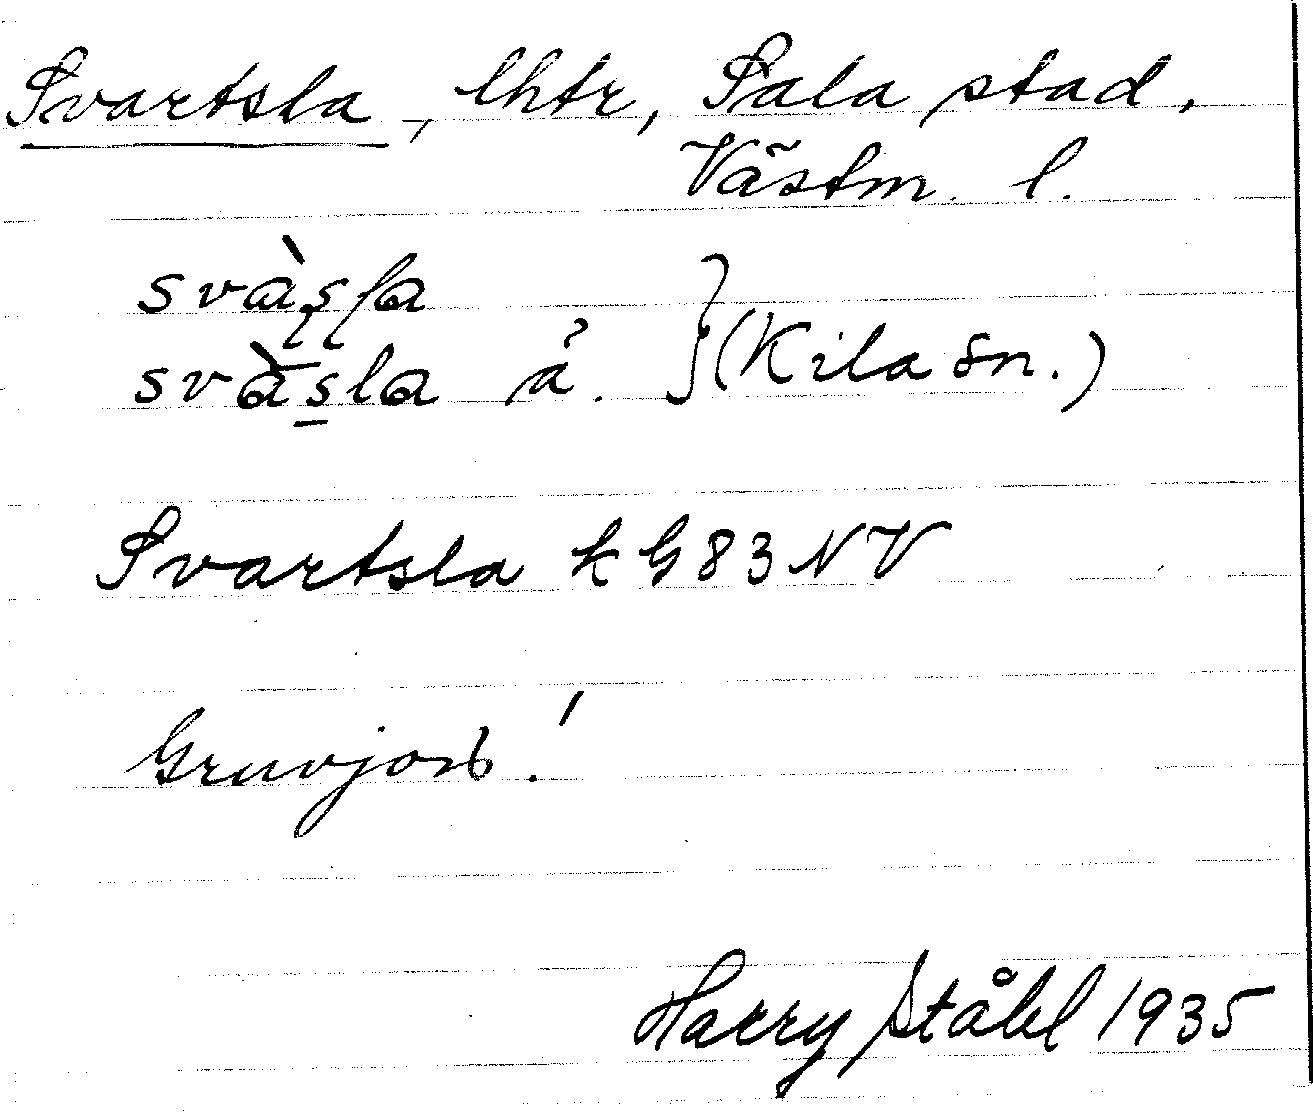 Svartsla, lhtr, Sala stad,
Västm. l.
svàsla
svàsla å. } (Kila sn.)
Svartsla k G 83 NV
Gruvjord!
Harry Ståhl 1935